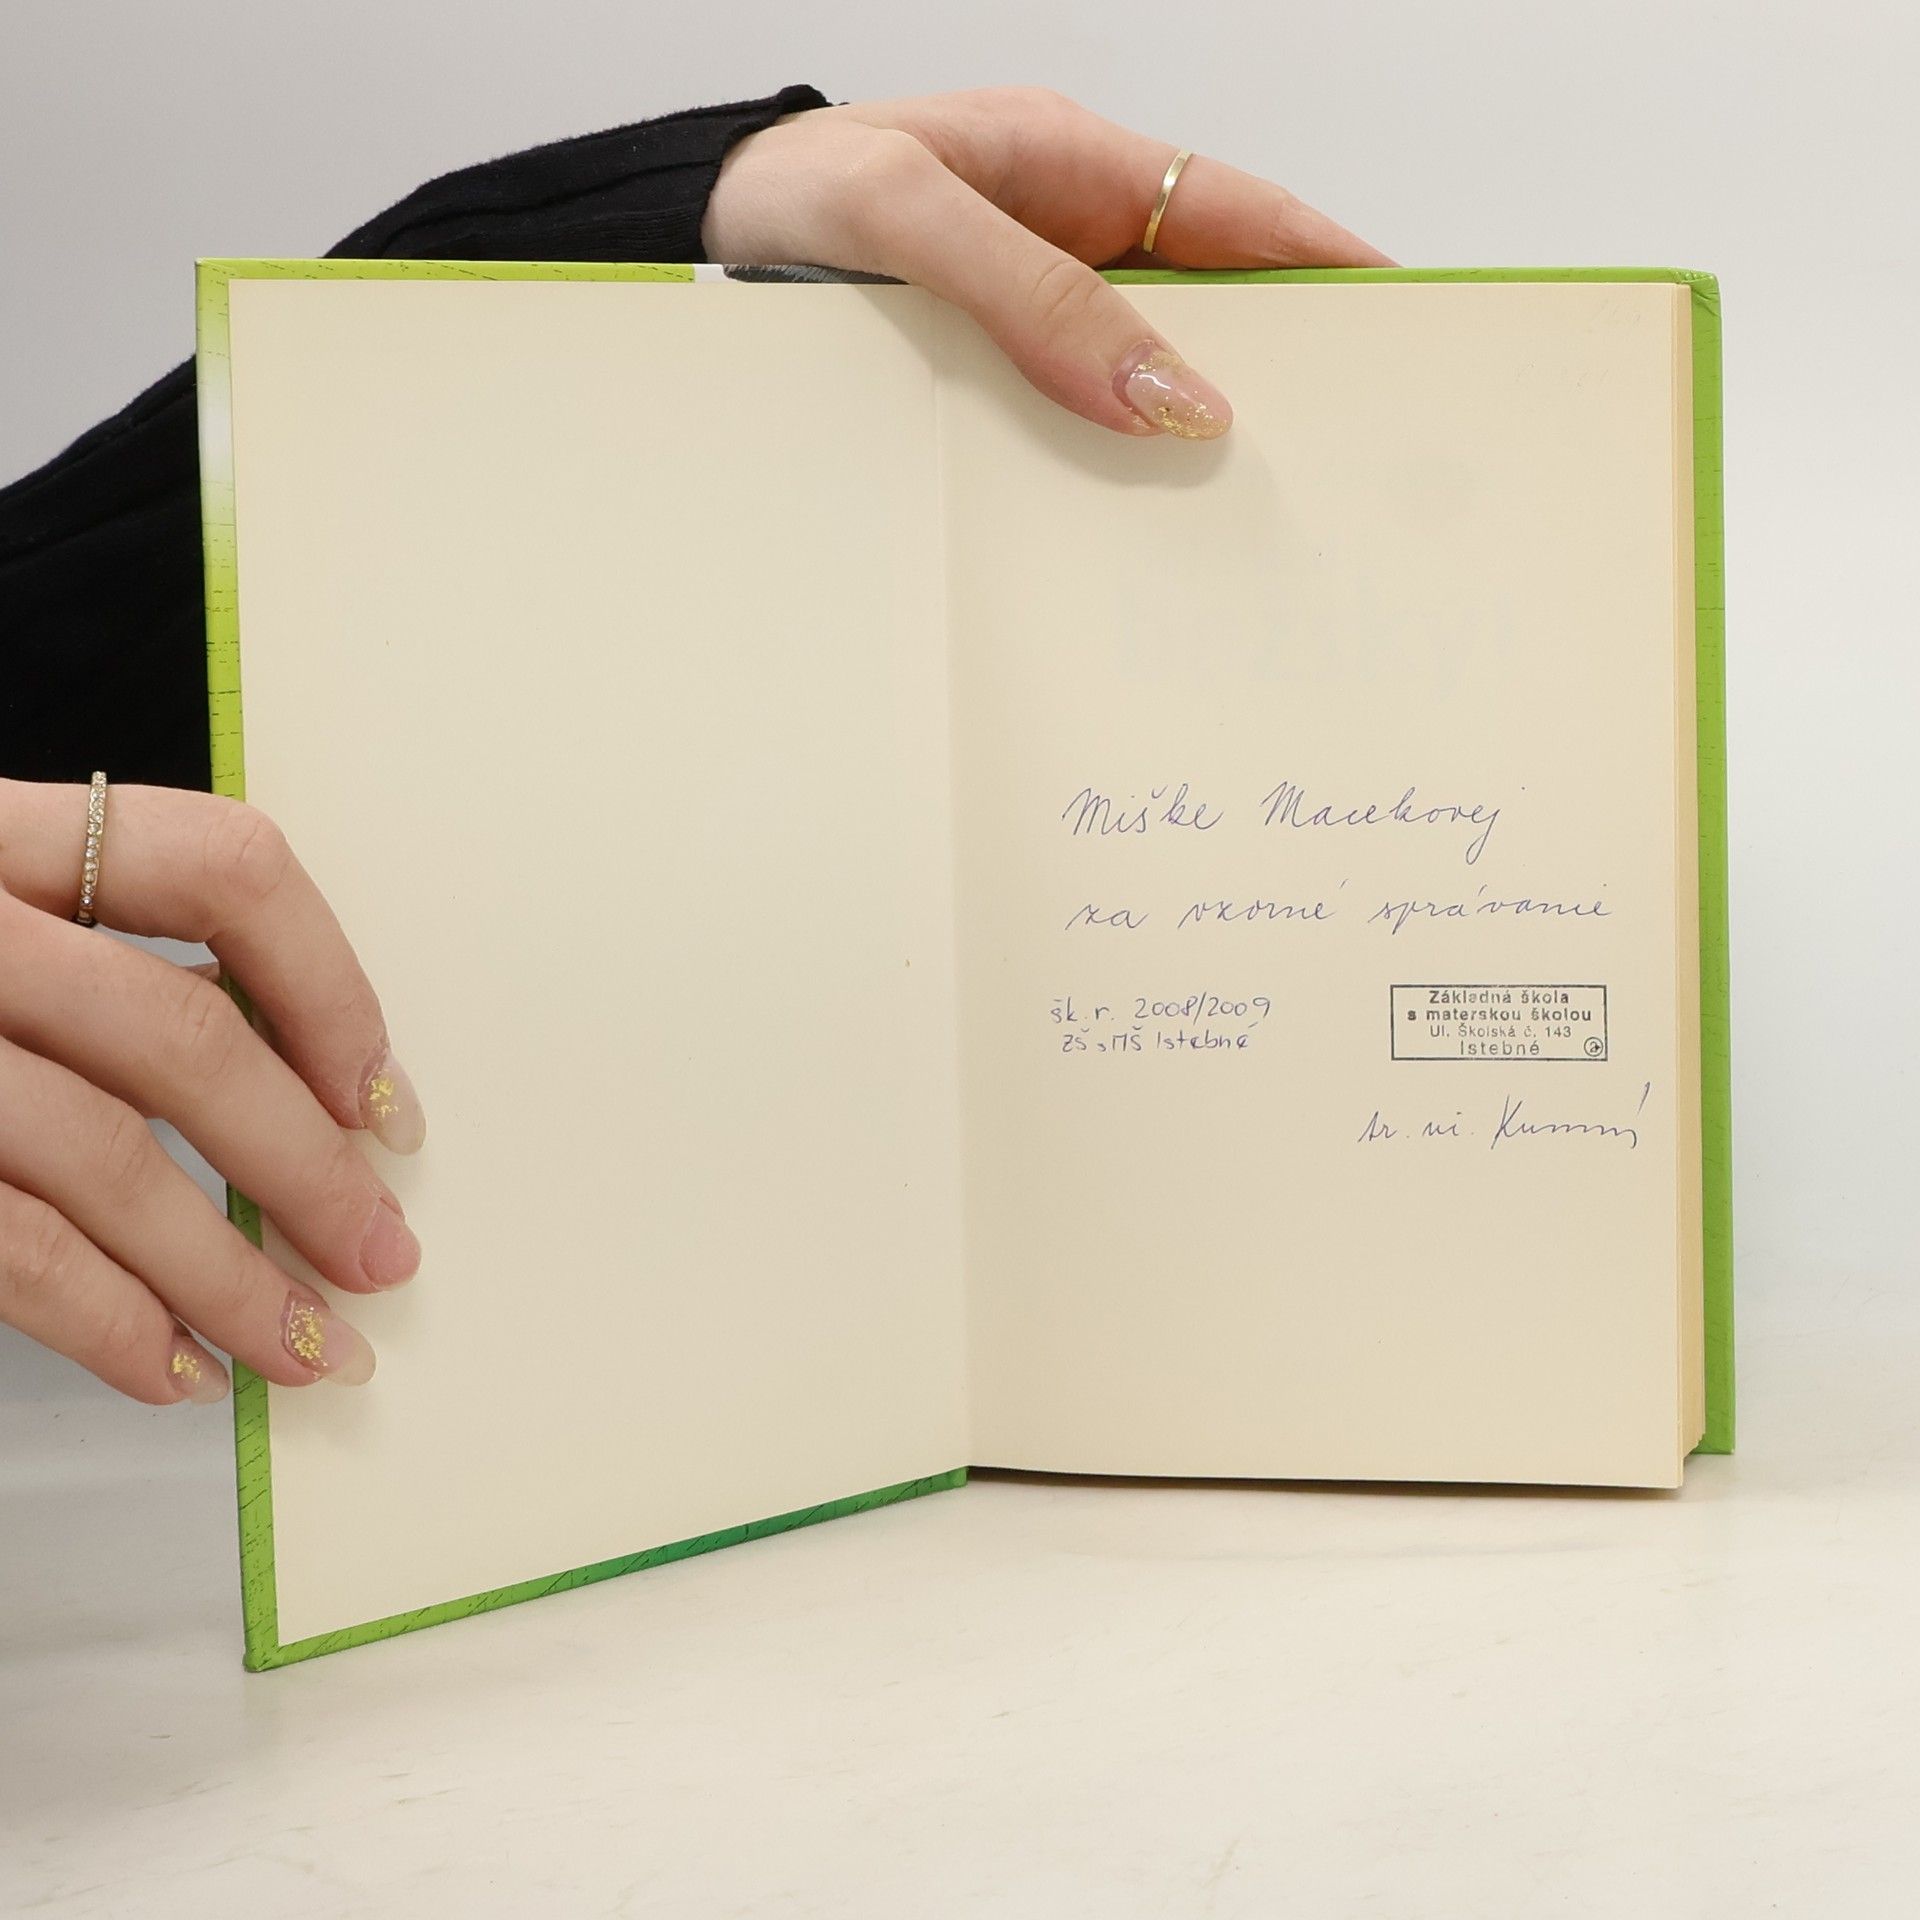 Miške Macekovej
za vzorné správanie
šk. r. 2008/2009
ZŠ s MŠ Istebné
Základná škola
s materskou školou
Ul. Školská č. 143
Istebné
tr. uč.